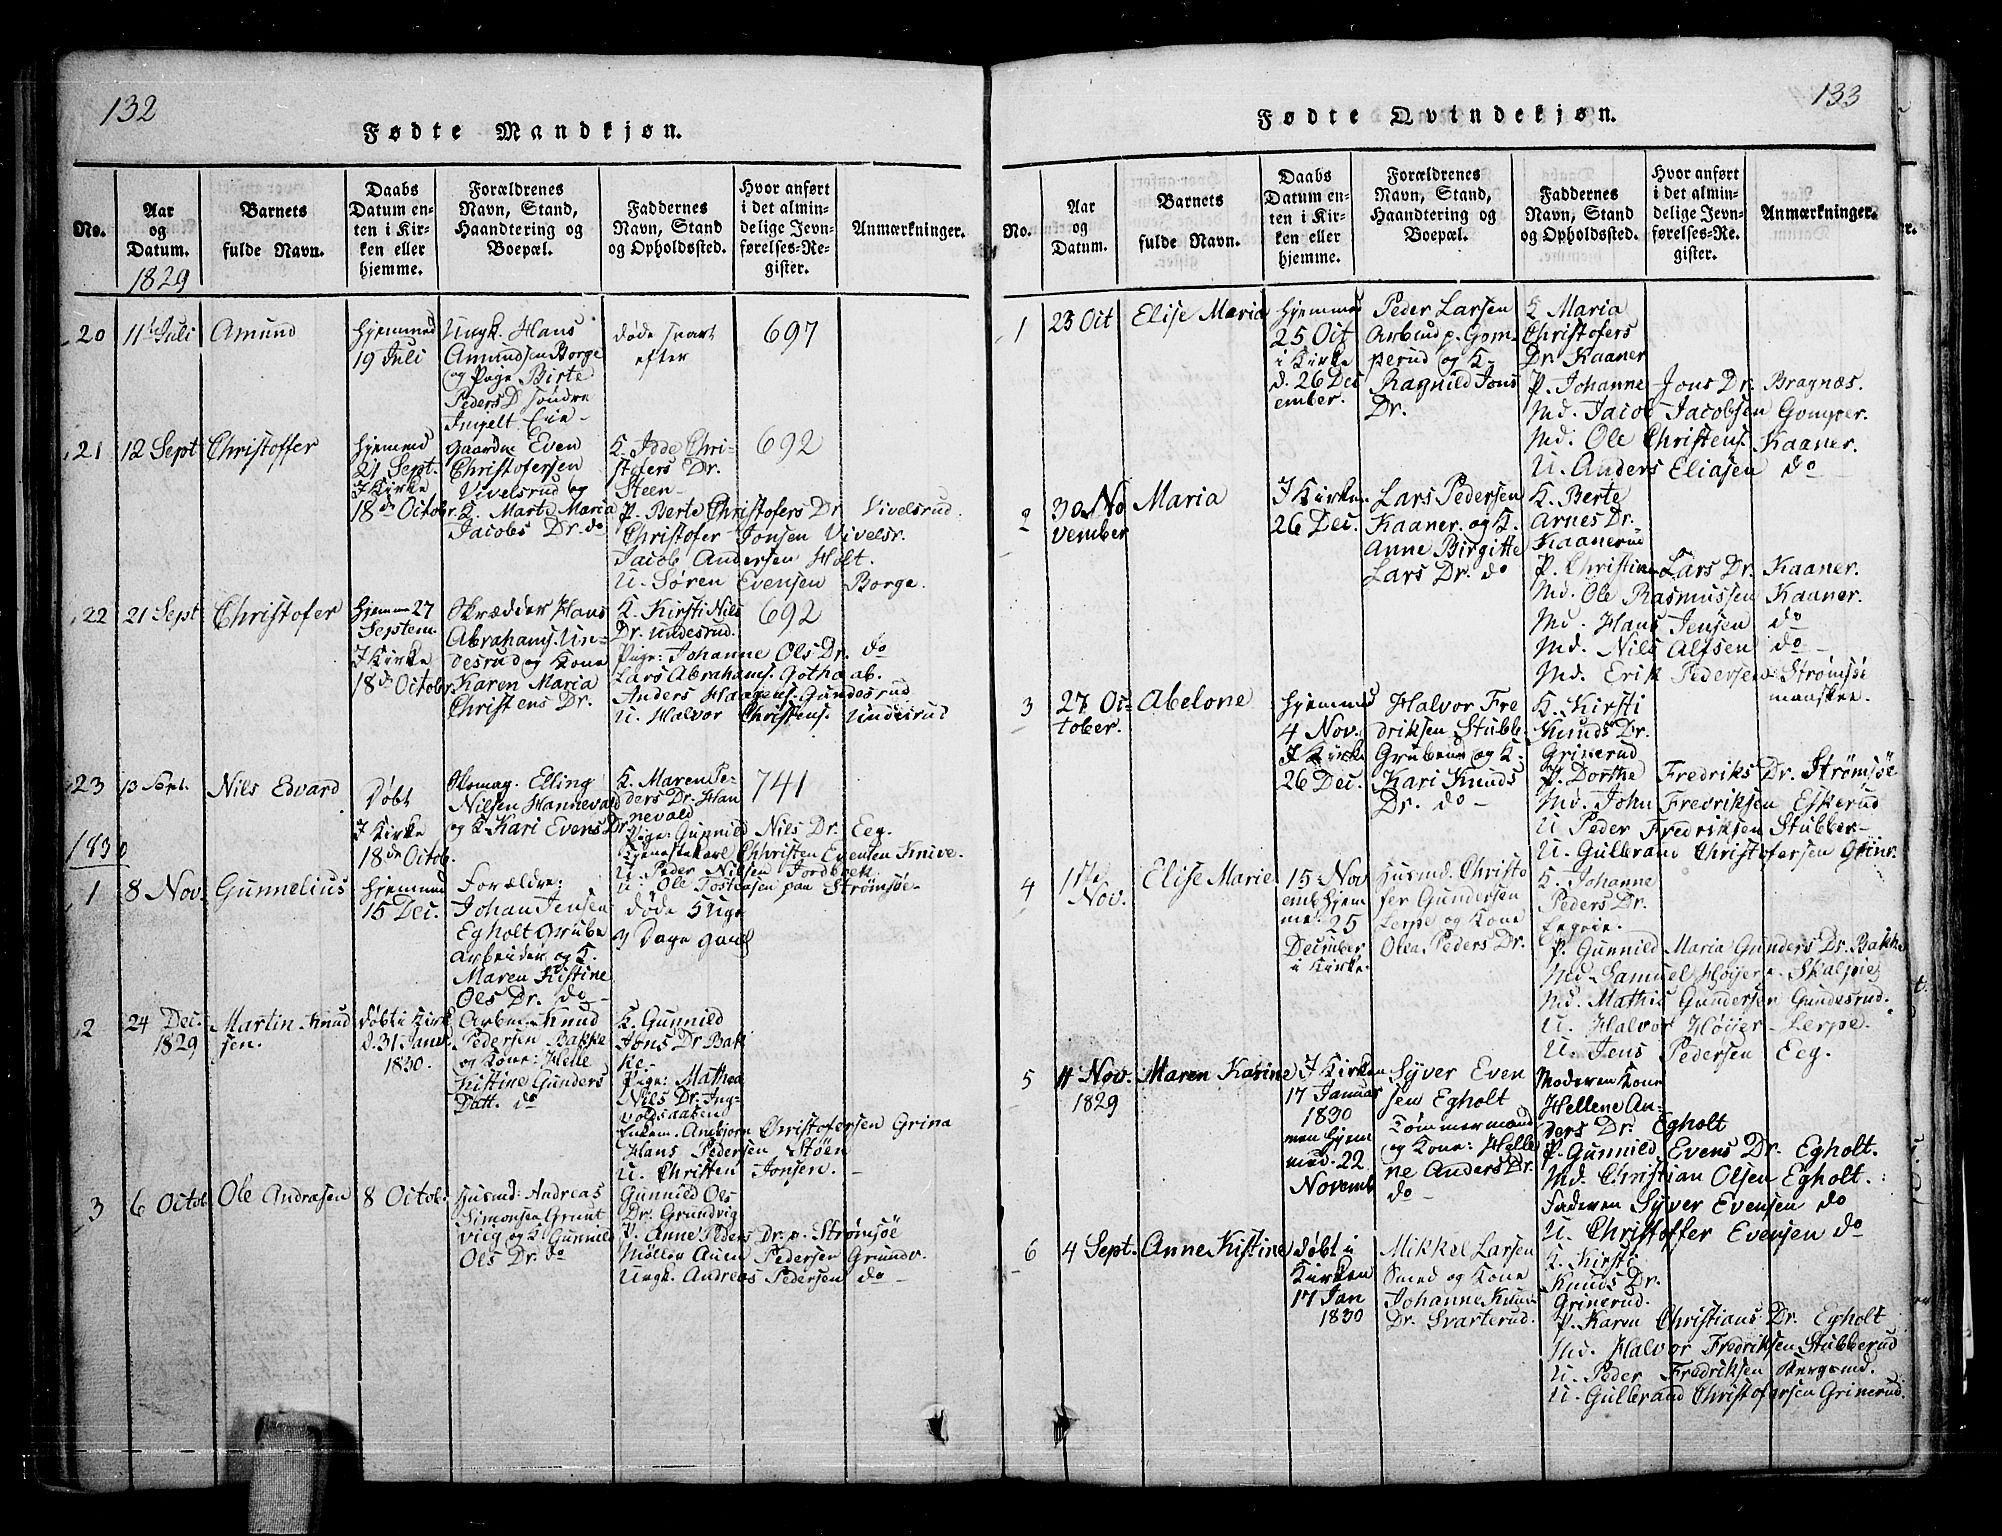 132
Fødte Mandkjøn.
No.
Aar
og
Datum.
1829
Barnets
fulde Navn.
Daabs
Datum en-
ten i Kir-
ken eller
hjemme.
Forældrenes
Navn, Stand,
Haandtering og
Boepæl.
Faddernes
Navn, Stand
og Opholdssted.
Hvor anført
i det almin-
delige Jevn-
førelses-Re-
gister.
Anmærkninger.
20
11t Juli
Amund
Hjemmed
19 Juli
Ungk. Hans
Amundsen Borge
og Pige Birte
Peders D. søndre
Ingelt Eie
døde svart
efter
697
21
12 Sept
Christoffer
Hjemmed
21 Sept.
I Kirke
18de Octobr.
Gaardm. Even
Christofersen
Vivelsrud og
K. Marte Maria
Jacobs Dr. do
K. Idde Chri-
stofers Dr.
Steen
P. Berte Christofers Dr. Vivelsrud.
Christofer Jonsen Vivelsr.
Jacob Andersen Holt.
U. Søren Evensen Borge.
692
22
21 Sept
Christofer
Hjemme 27
Septem.
I Kirke
18de Octobr
Skrædder Hans
Abrahams. Un-
desrud og Kone
Karen Maria
Christens Dr.
K. Kirsti Nils
Dr. Undesrud.
Pige: Johanne Ols Dr. do
Lars Abrahams. Gothaab.
Anders Haagens. Gundesrud
U. Halvor Christens. Undesrud
692
23
13 Sept.
Nils Edvard
Døbt
I Kirke
18de Octob.
Skomag. Elling
Nilsen Hannevald
og K. Kari Evens Dr
K. Maren Pe-
ders Dr. Han
nevald
Pige: Gunnild Nils Dr. Eeg.
Tjenestekarl Christen Evensen Knive.
U. Peder Nilsen Jordbræk
U. Ole Tostensen paa Strømsøe.
741
1830
1
8 Nov.
Gunnelius
Hjemmed
15 Dec.
Forældre:
Johan Jensen
Egholt Grube
arbeider og K.
Maren Kistine
Ols Dr. do
døde 5 Uger
3 Dage gaml
2
24 Dec.
1829
Martin Knud
sen.
Døbt i Kirk
d. 31 Janua
1830.
Arbm. Knud
Pedersen Bakke
og Kone: Helle
Kistine Gunders
Datt. do
K. Gunnild
Jons Dr. Bak
ke.
Pige: Mathea
Nils Dr. Ing-
voldsaasen
Enkem. Ansbjørn Christofersen Grina
Hans Pedersen Støen
U. Christen Jonsen.
3
6 Octob.
Ole Andrasen
8 Octob.
Husmd: Andreas
Simonsen Grunt
vieg og K. Gunnild
Ols Dr. do
Gunnild Ols
Dr. Grundvig
P. Anne Peders Dr. p. Strømsöe
Møller Aien Pedersen Grundv.
Ungk. Andreas Pedersen do
133
Fødte Qvindekjøn.
No.
Aar
og
Datum.
Barnets
fulde Navn.
Daabs
Datum en-
ten i Kir-
ken eller
hjemme.
Forældrenes
Navn, Stand,
Haandtering og
Boepæl.
Faddernes
Navn, Stand
og Opholdssted.
Hvor anført
i det almin-
delige Jevn-
førelses-Re-
gister.
Anmærkninger.
1
23 Oct
Elise Maria
Hjemme
25 Oct
i Kirke
d. 26 Dec
ember.
Peder Larsen
Arbmd p. Gom-
perud og K.
Ragnild Jons
Dr.
K Maria
Christofers
Dr. Kaaner
P. Johanne Jons Dr. Bragnæs.
Md. Jacob Jacobsen Gomper.
Md. Ole Christens. Kaaner.
U. Anders Eliasen do
2
30 No
vember
Maria
I Kirken
26 Dec.
Lars Pedersen
Kaaner. og K.
Anne Birgitte
Lars Dr. do
K. Berte
Arnes Dr.
Kaanerud
P. Christine Lars Dr. Kaaner.
Md. Ole Rasmussen Kaaner.
Md. Hans Jensen do
Md. Nils Alfsen do
Md. Erik Pedersen Strømsöe
marsken.
3
27 Oc-
tober.
Abelone
Hjemmed
4 Nov.
I Kirke
26 Dec.
Halvor Fre
driksen Stubbe
Gruben og K:
Kari Knuds
Dr. do
K. Kirsti
Knuds Dr.
Grinerud
P. Dorthe Fredriks Dr. Strømsöe
Md. John Fredriksen Eskerud
U. Peder Fredriksen Stubber
U. Gulbrand Christofersen Grinr.
4
1ste
Nov.
Elise Marie
15 Nov
emb hjem
med. 25
December
i Kirke.
Husmd. Christo
fer Gundersen
Lerpe og Kone
Olea Peders Dr.
K. Johanne
Peders Dr.
Eegeie.
P. Gunnild Maria Gunders Dr. Bakke
Md. Samuel Høijer Skalpeie
Md. Mathis Gundersen Gundesrud.
U. Halvor Høijer Lerpe.
U. Jens Pedersen Eeg.
5
11 Nov.
1829
Maren Karine
I Kirken
17 Januar
1830
men hjem
med. 22
Novemb
Syver Even
sen Egholt
Tømmermand
og Kone: Helle
ne Anders Dr.
do
Moderen Kone
Hellene An-
ders Dr. Egholt
P. Gunnild Evens Dr. Egholt.
Md. Christian Olsen Egholt.
Faderen Syver Evensen do
U. Christoffer Evensen do
6
4 Sept.
Anne Kistine
Døbt i
Kirken
17 Jan
1830
Mikkel Larsen
Smed og Kone
Johanne Knuds
Dr. Svarterud.
K. Kirsti
Knuds Dr.
Grinerud.
P. Karen Christians Dr. Egholt
Md. Halvor Fredriksen Stubberud
U. Peder Fredriksen Bergsmd.
U. Gulbrand Christofersen Grinerud.